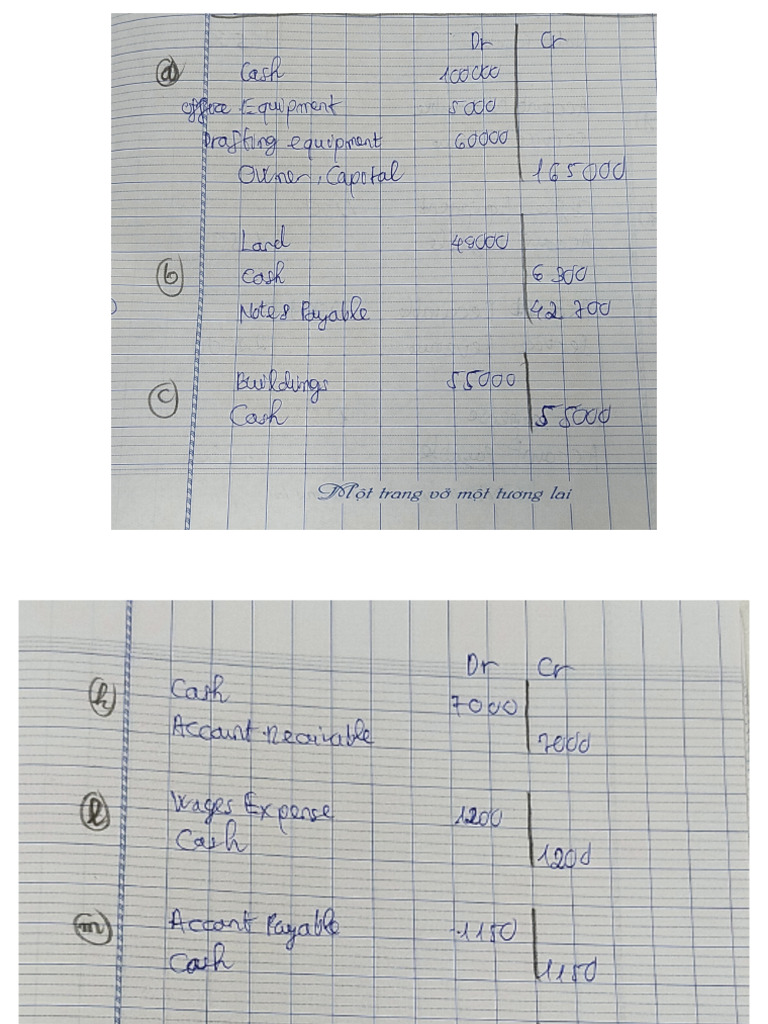 Dr Cr
(a) Cash 100000
office Equipment 5000
Drafting equipment 60000
Owner, Capotal 165000
Land 49000
(b) Cash 6300
Notes Payable 42 700
(c) Buildings 55000
Cash 55000
Một trang vở một tương lai
Dr Cr
(h) Cash 7000
Account receivable 7000
(l) Wages Expense 1200
Cash 1200
(m) Accont Payable 1150
Cash 1150